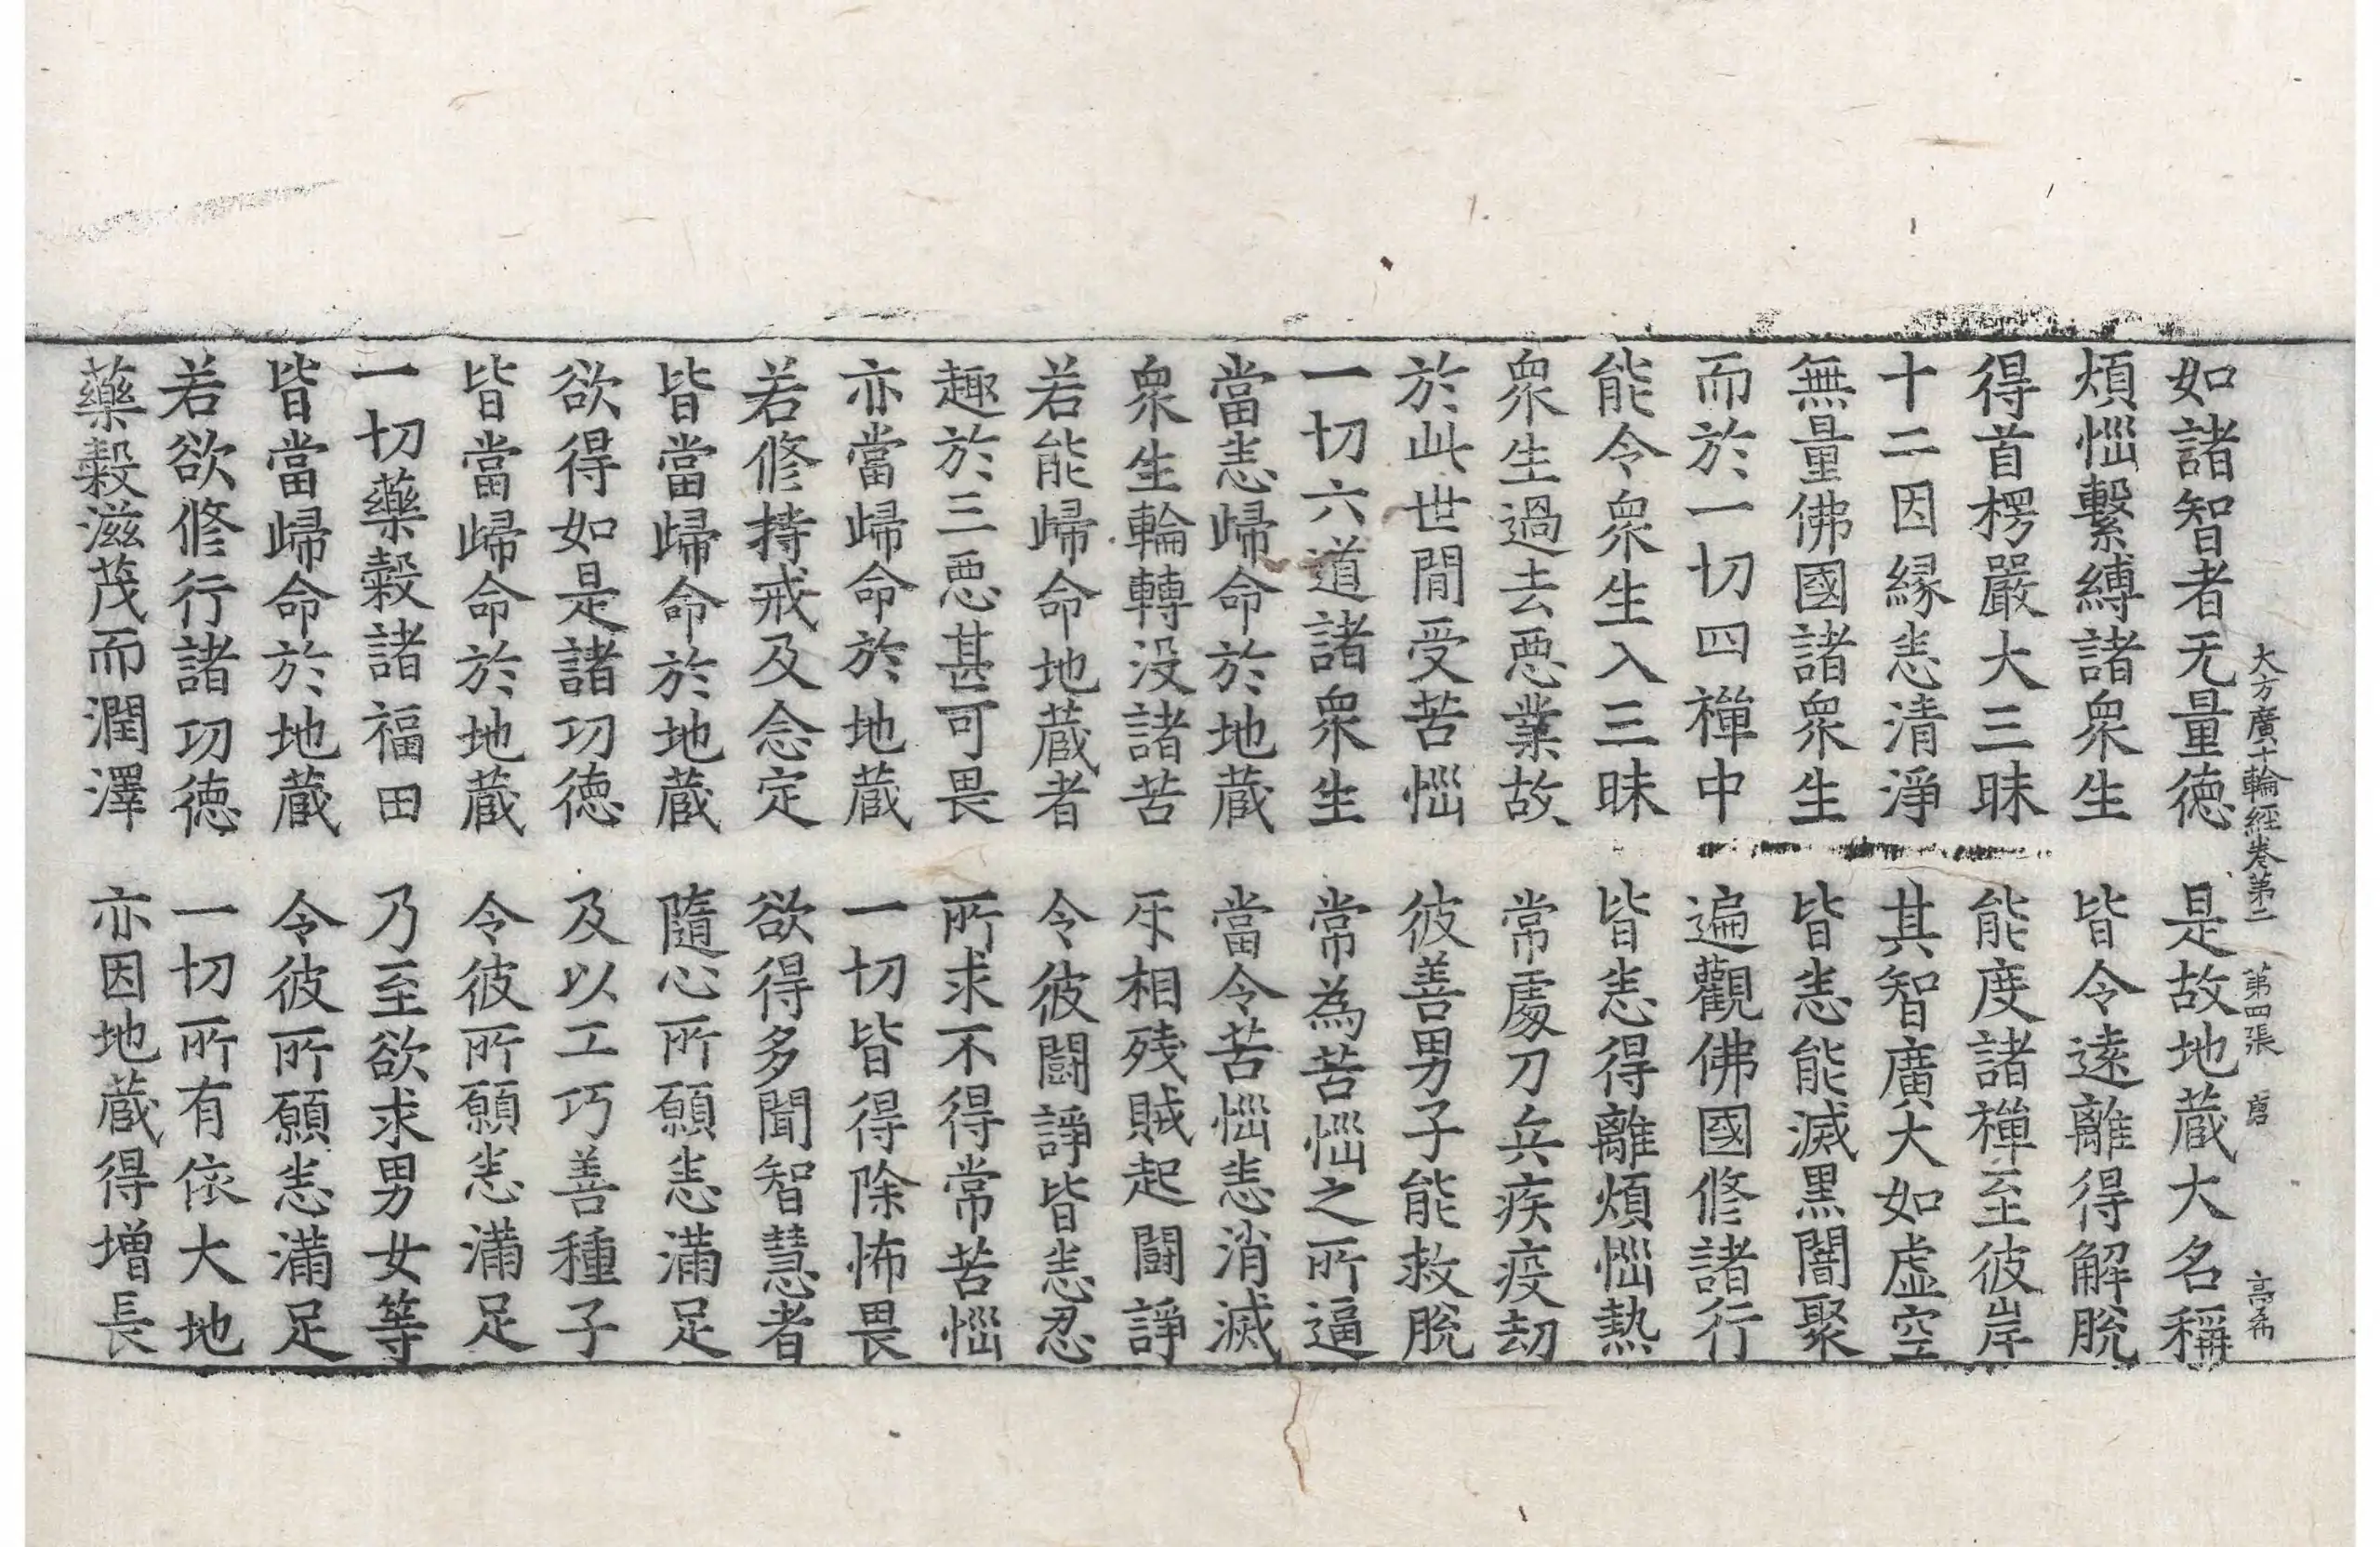 大方廣十輪經卷第二 第四張 唐 高希
如諸智者无量德 是故地蔵大名稱
煩惱繫縛諸衆生 皆令遠離得解脫
得首楞嚴大三昧 能度諸禪至彼岸
十二因縁悉清淨 其智廣大如虛空
無量佛國諸衆生 皆悉能滅黒闇聚
而於一切四禪中 遍觀佛國修諸行
能令衆生入三昧 皆悉得離煩惱熱
衆生過去惡業故 常處刀兵疾疫劫
於此世間受苦惱 彼善男子能救脫
一切六道諸衆生 常為苦惱之所逼
當悉歸命於地蔵 當令苦惱悉消滅
衆生輪轉没諸苦 㸦相残賊起闘諍
若能歸命地蔵者 令彼闘諍皆悉忍
趣於三惡甚可畏 所求不得常苦惱
亦當歸命於地蔵 一切皆得除怖畏
若修持戒及念定 欲得多聞智慧者
皆當歸命於地蔵 隨心所願悉滿足
欲得如是諸功德 及以工巧善種子
皆當歸命於地蔵 令彼所願悉滿足
一切藥穀諸福田 乃至欲求男女等
皆當歸命於地蔵 令彼所願悉滿足
若欲修行諸功德 一切所有依大地
藥穀滋茂而潤澤 亦因地蔵得增長